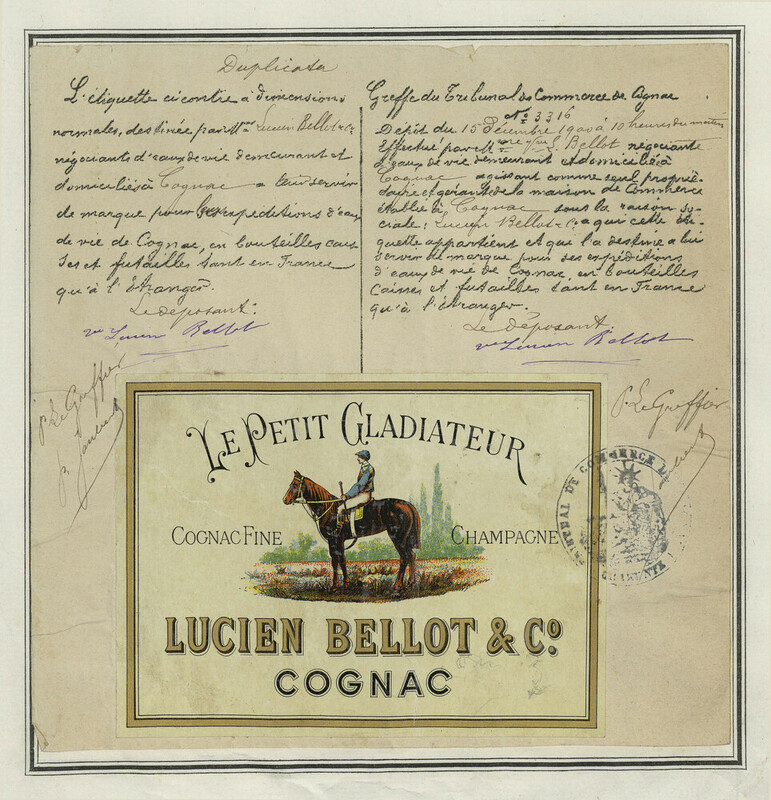 Duplicata
L'étiquette ci contre à dimensions
normales, destinée par Mme Lucien Bellot & Co
négociants d'eaux de vie demeurant et
domiciliés à Cognac a leur servir
de marque pour les expeditions d'eaux
de vie de Cognac, en bouteilles cais
ses et futailles tant en France
qu'à l'étranger.
Le déposant:
Vve Lucien Bellot
P. Le Greffier
Greffe du Tribunal de Commerce de Cognac
No 3316
Dépôt du 15 décembre 1900 à 10 heures du matin
Effectué par Mme Vve L. Bellot négociante
d'eaux de vie demeurant et domiciliée à
Cognac agissant comme seul proprié-
taire et gérant de la maison de Commerce
établie à Cognac sous la raison so-
ciale: Lucien Bellot & Co a qui cette éti-
quette appartient et qui l'a destine a lui
servir de marque pour ses expéditions
d'eaux de vie de Cognac, en bouteilles
Caisses et futailles tant en France
qu'à l'étranger.
Le déposant
Vve Lucien Bellot
P. Le Greffier
TRIBUNAL DE COMMERCE
LE PETIT GLADIATEUR
COGNAC FINE CHAMPAGNE
LUCIEN BELLOT & Co
COGNAC